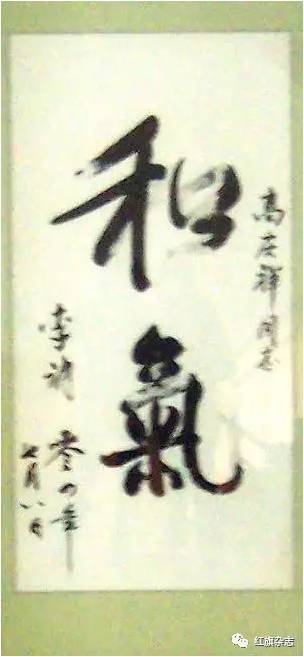 高庆祥同志
和氣
李讷 零四年
七月八日
红旗杂志